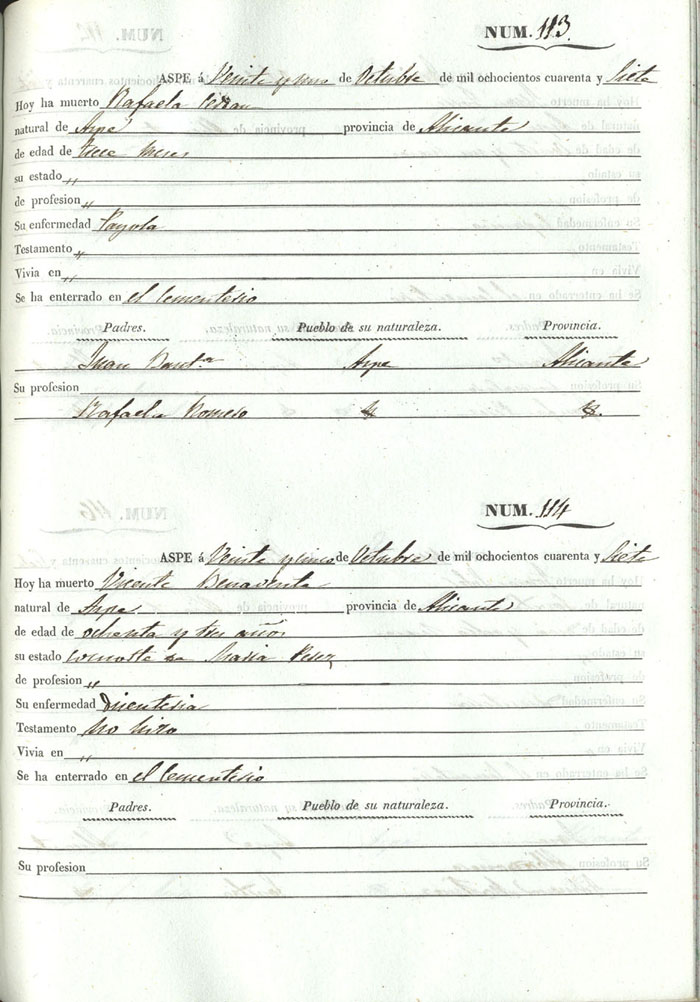 NUM. 113.
ASPE á Veinte y uno de Octubre de mil ochocientos cuarenta y Siete
Hoy ha muerto Rafaela
natural de Aspe provincia de Alicante
de edad de trece meses
su estado „
de profesion „
Su enfermedad Payola
Testamento „
Vivia en „
Se ha enterrado en el Cementerio
Padres. Pueblo de su naturaleza. Provincia.
Juan Baut.ª Aspe Alicante
Su profesion
Rafaela Romero
NUM. 114
ASPE á Veinte y cinco de Octubre de mil ochocientos cuarenta y Siete
Hoy ha muerto Vicente Benavente
natural de Aspe provincia de Alicante
de edad de ochenta y tres años
su estado consorte de Maria Perez
de profesion „
Su enfermedad Disenteria
Testamento No hizo
Vivia en „
Se ha enterrado en el Cementerio
Padres. Pueblo de su naturaleza. Provincia.
Su profesion